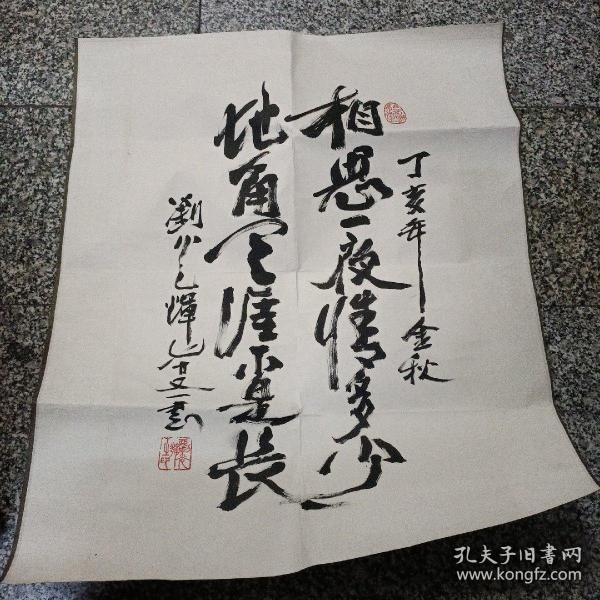 丁亥年金秋
相思一夜情多少
地角天涯不是长
劉
書
孔夫子旧书网
www.kongfz.com